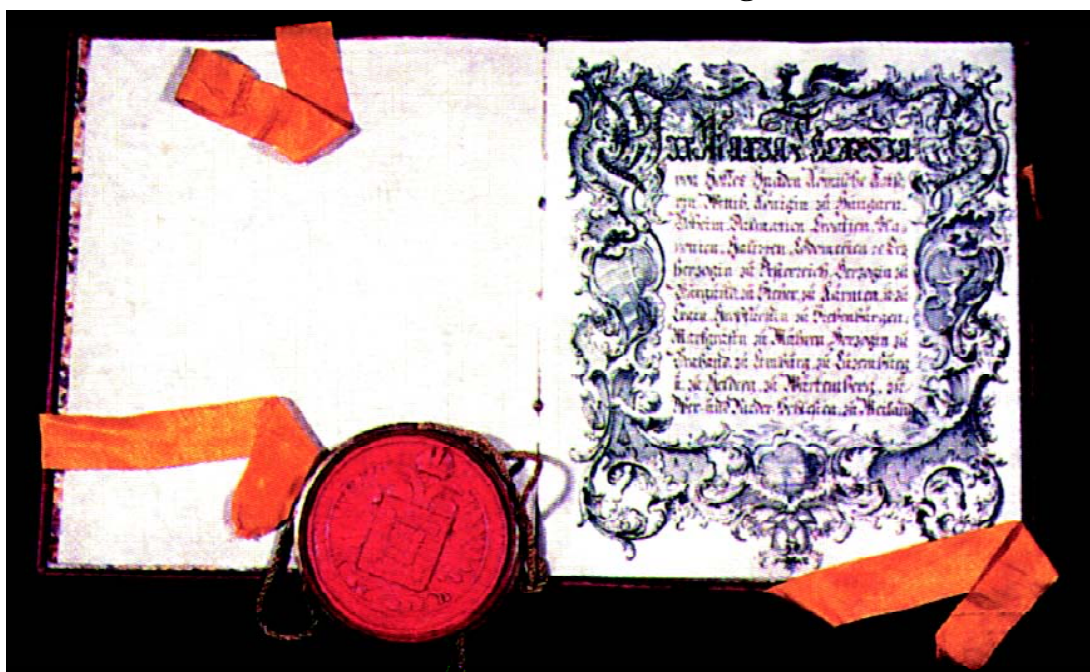 Wir Maria Theresia
von Gottes Gnaden Römische Kaise
rin, Wittib, Königin zu Hungarn,
Böheim, Dalmatien, Croatien, Sla,
vonien, Galizien, Lodomerien &c Erz
Herzogin zu Österreich, Herzogin zu
Burgund, zu Steyer, zu Kärnten, u. zu
Crain, Großfürstin zu Siebenbürgen,
Markgräfin zu Mähren, Herzogin zu
Braband, zu Limburg, zu Luxemburg
u. zu Geldern, zu Würtemberg, zu
Ober- und Nieder-Schlesien, zu Meiland